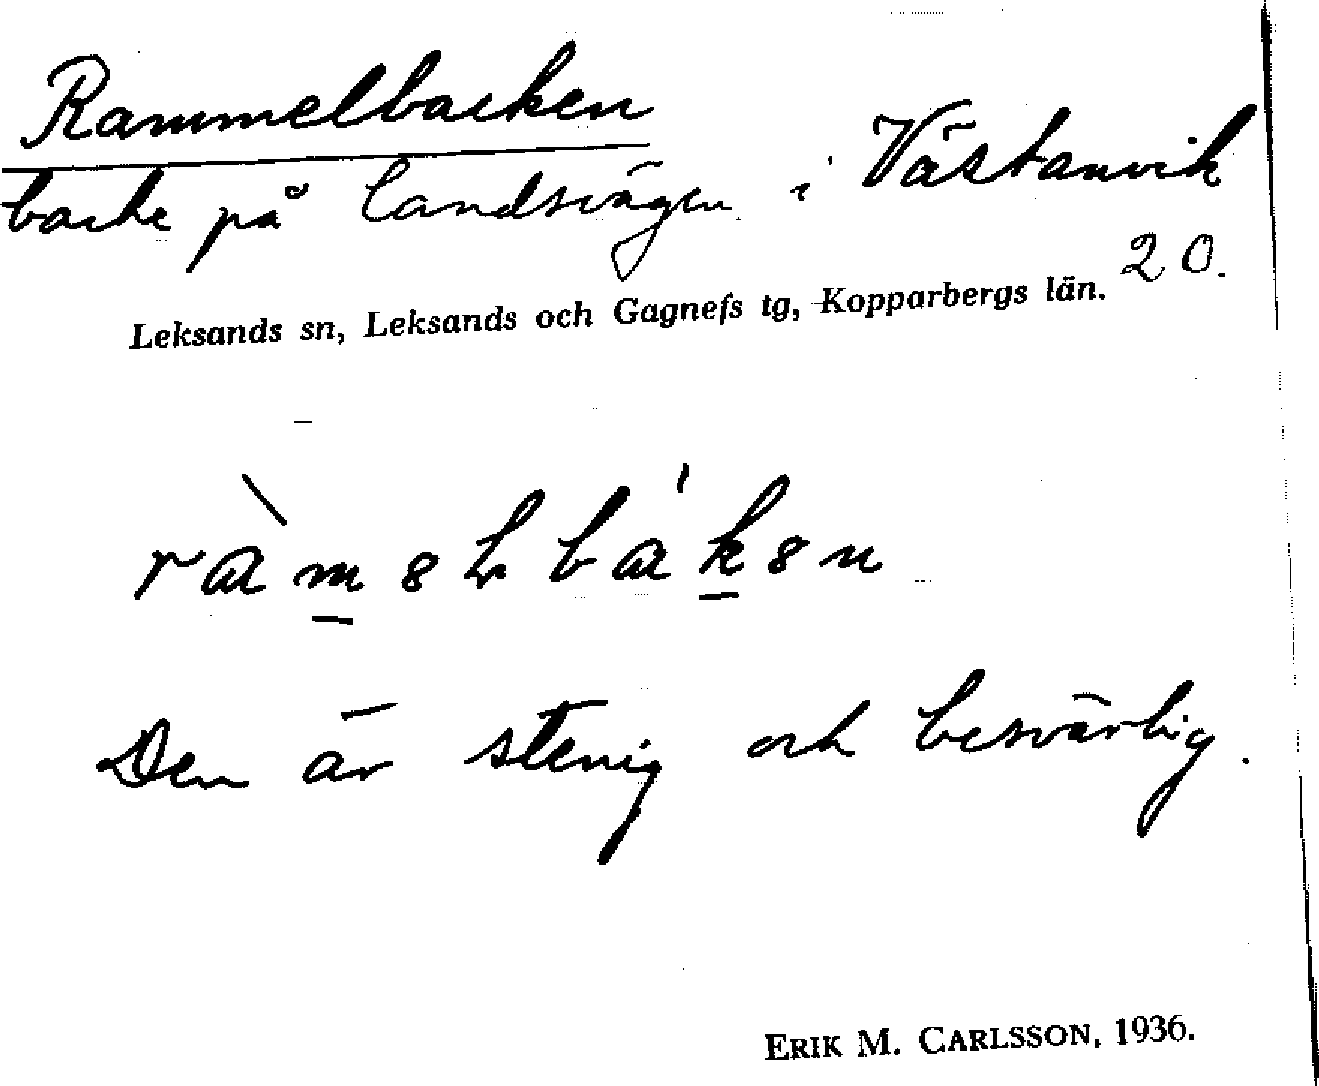 Rammelbacken
backe på landsvägen i Västanvik
20.
Leksands sn, Leksands och Gagnefs tg, Kopparbergs län.
Den är stenig och besvärlig.
ERIK M. CARLSSON, 1936.